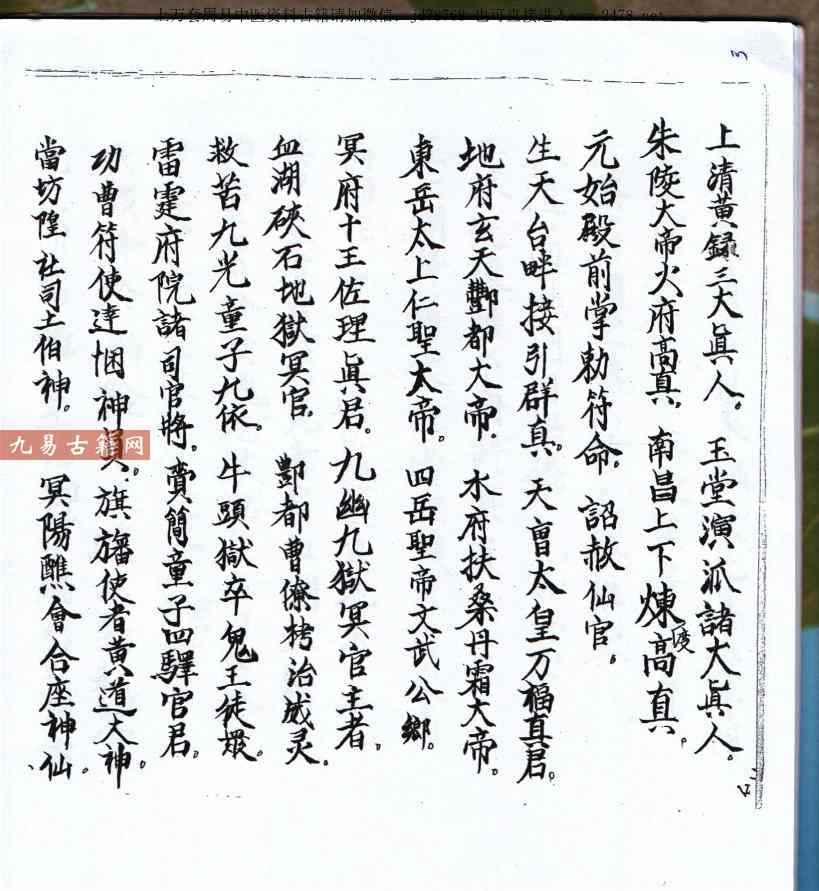 上清黄録三大眞人。玉堂演派諸大眞人。
朱陵大帝火府高真。南昌上下煉度高真。
元始殿前掌勅符命。詔赦仙官。
生天台畔接引群真。天曹太皇万福真君。
地府玄天酆都大帝。水府扶桑丹霜大帝。
東岳太上仁聖大帝。四岳聖帝文武公鄉。
冥府十王佐理眞君。九幽九獄冥官主者。
血湖硤石地獄冥官。酆都曹僚栲治威灵。
救苦九光童子九依。牛頭獄卒鬼王徒眾。
雷霆府院諸司官將。賷簡童子四驛官君。
功曹符使達悃神員。旗旛使者黄道大神。
當坊隍社司土伯神。冥陽醮會合座神仙。
九易古籍网